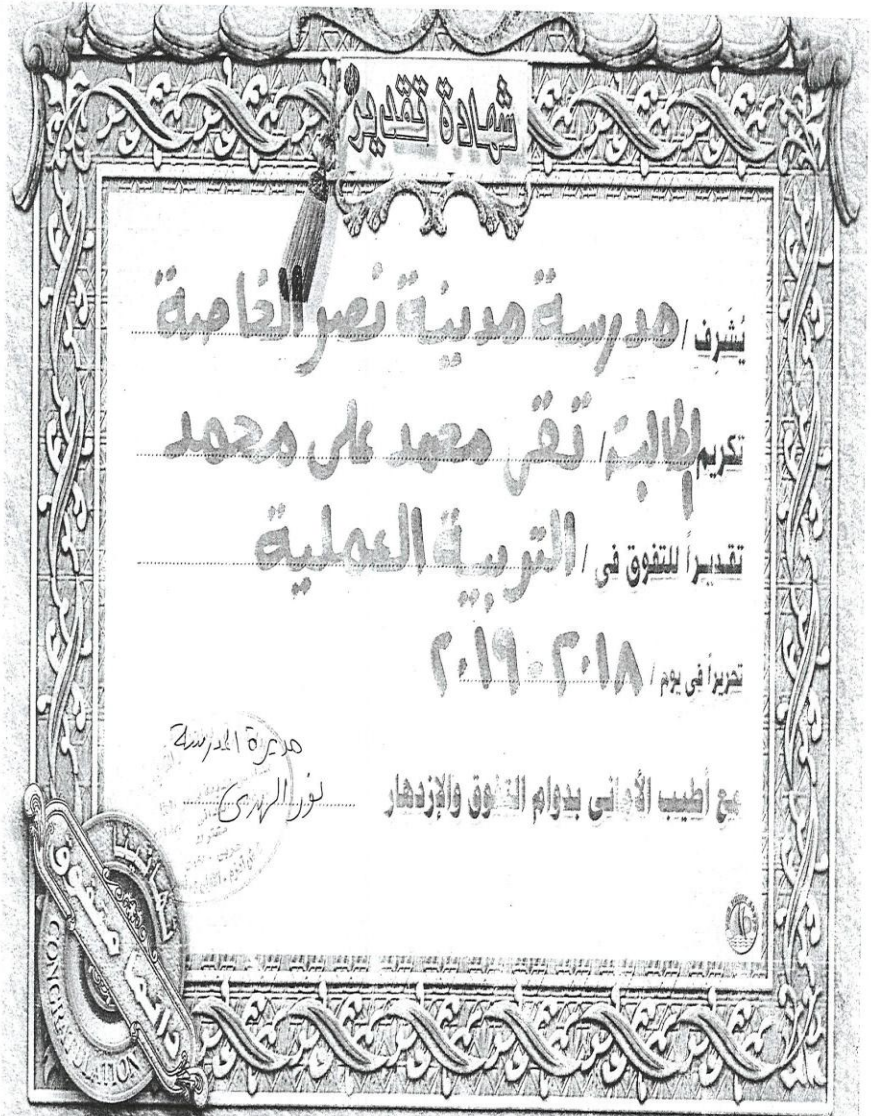 شهادة تقدير
يُشَرِف / مدرسة مدينة نصر الخاصة
تكريم الطالبة / تقى محمد على محمد
تقديراً للتفوق فى / التربية العملية
تحريراً فى يوم / ٢٠١٨ - ٢٠١٩
مديرة المدرسة
مع أطيب الأمانى بدوام التفوق والإزدهار نور الهدى
تهانينا
دائماً متفوق
CONGRATULATION